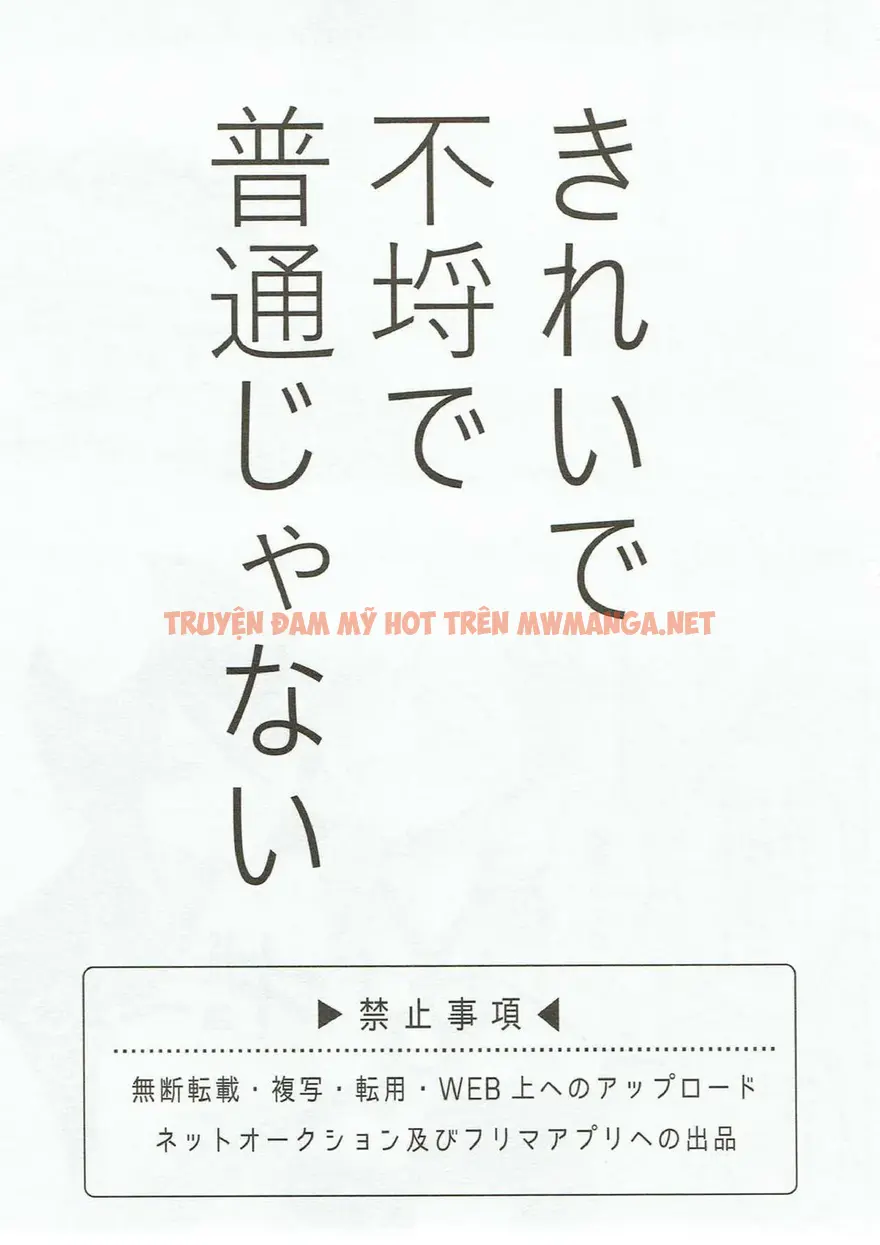 きれいで
不埒で
普通じゃない
TRUYỆN ĐAM MỸ HOT TRÊN MWMANGA.NET
▶禁止事項◀
無断転載・複写・転用・WEB上へのアップロード
ネットオークション及びフリマアプリへの出品